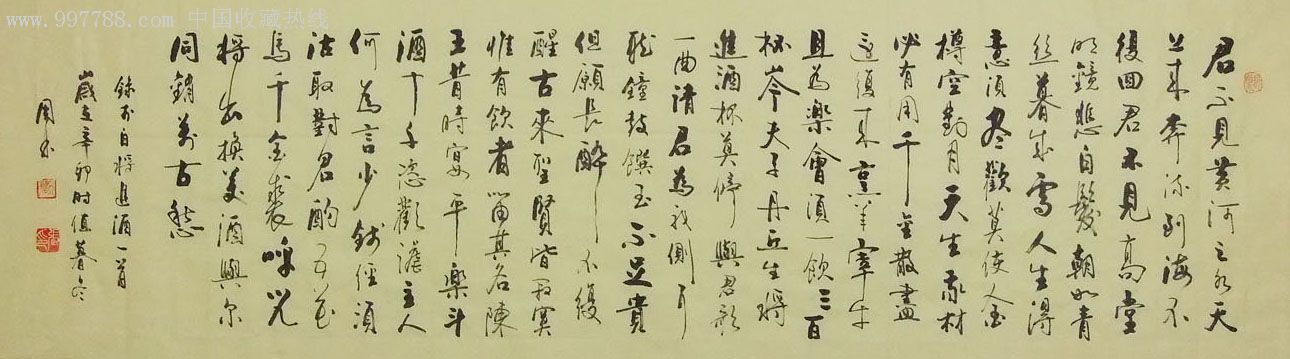 www.997788.com 中国收藏热线
君不見黄河之水天
上来奔流到海不
復回君不見高堂
明鏡悲白髮朝如青
丝暮成雪人生得
意須尽歡莫使金
樽空對月天生我材
必有用千金散盡
還復来烹羊宰牛
且為樂會須一飲三百
杯岑夫子丹丘生將
進酒杯莫停與君歌
一曲請君為我側耳
聽鐘鼓饌玉不足貴
但願長醉不復
醒古來聖賢皆寂寞
惟有飲者留其名陳
王昔時宴平樂斗
酒十千恣歡謔主人
何為言少錢徑須
沽取對君酌五花
馬千金裘呼兒
將出換美酒與尔
同銷萬古愁
錄李白將進酒一首
歲在辛卯时值暮冬
周